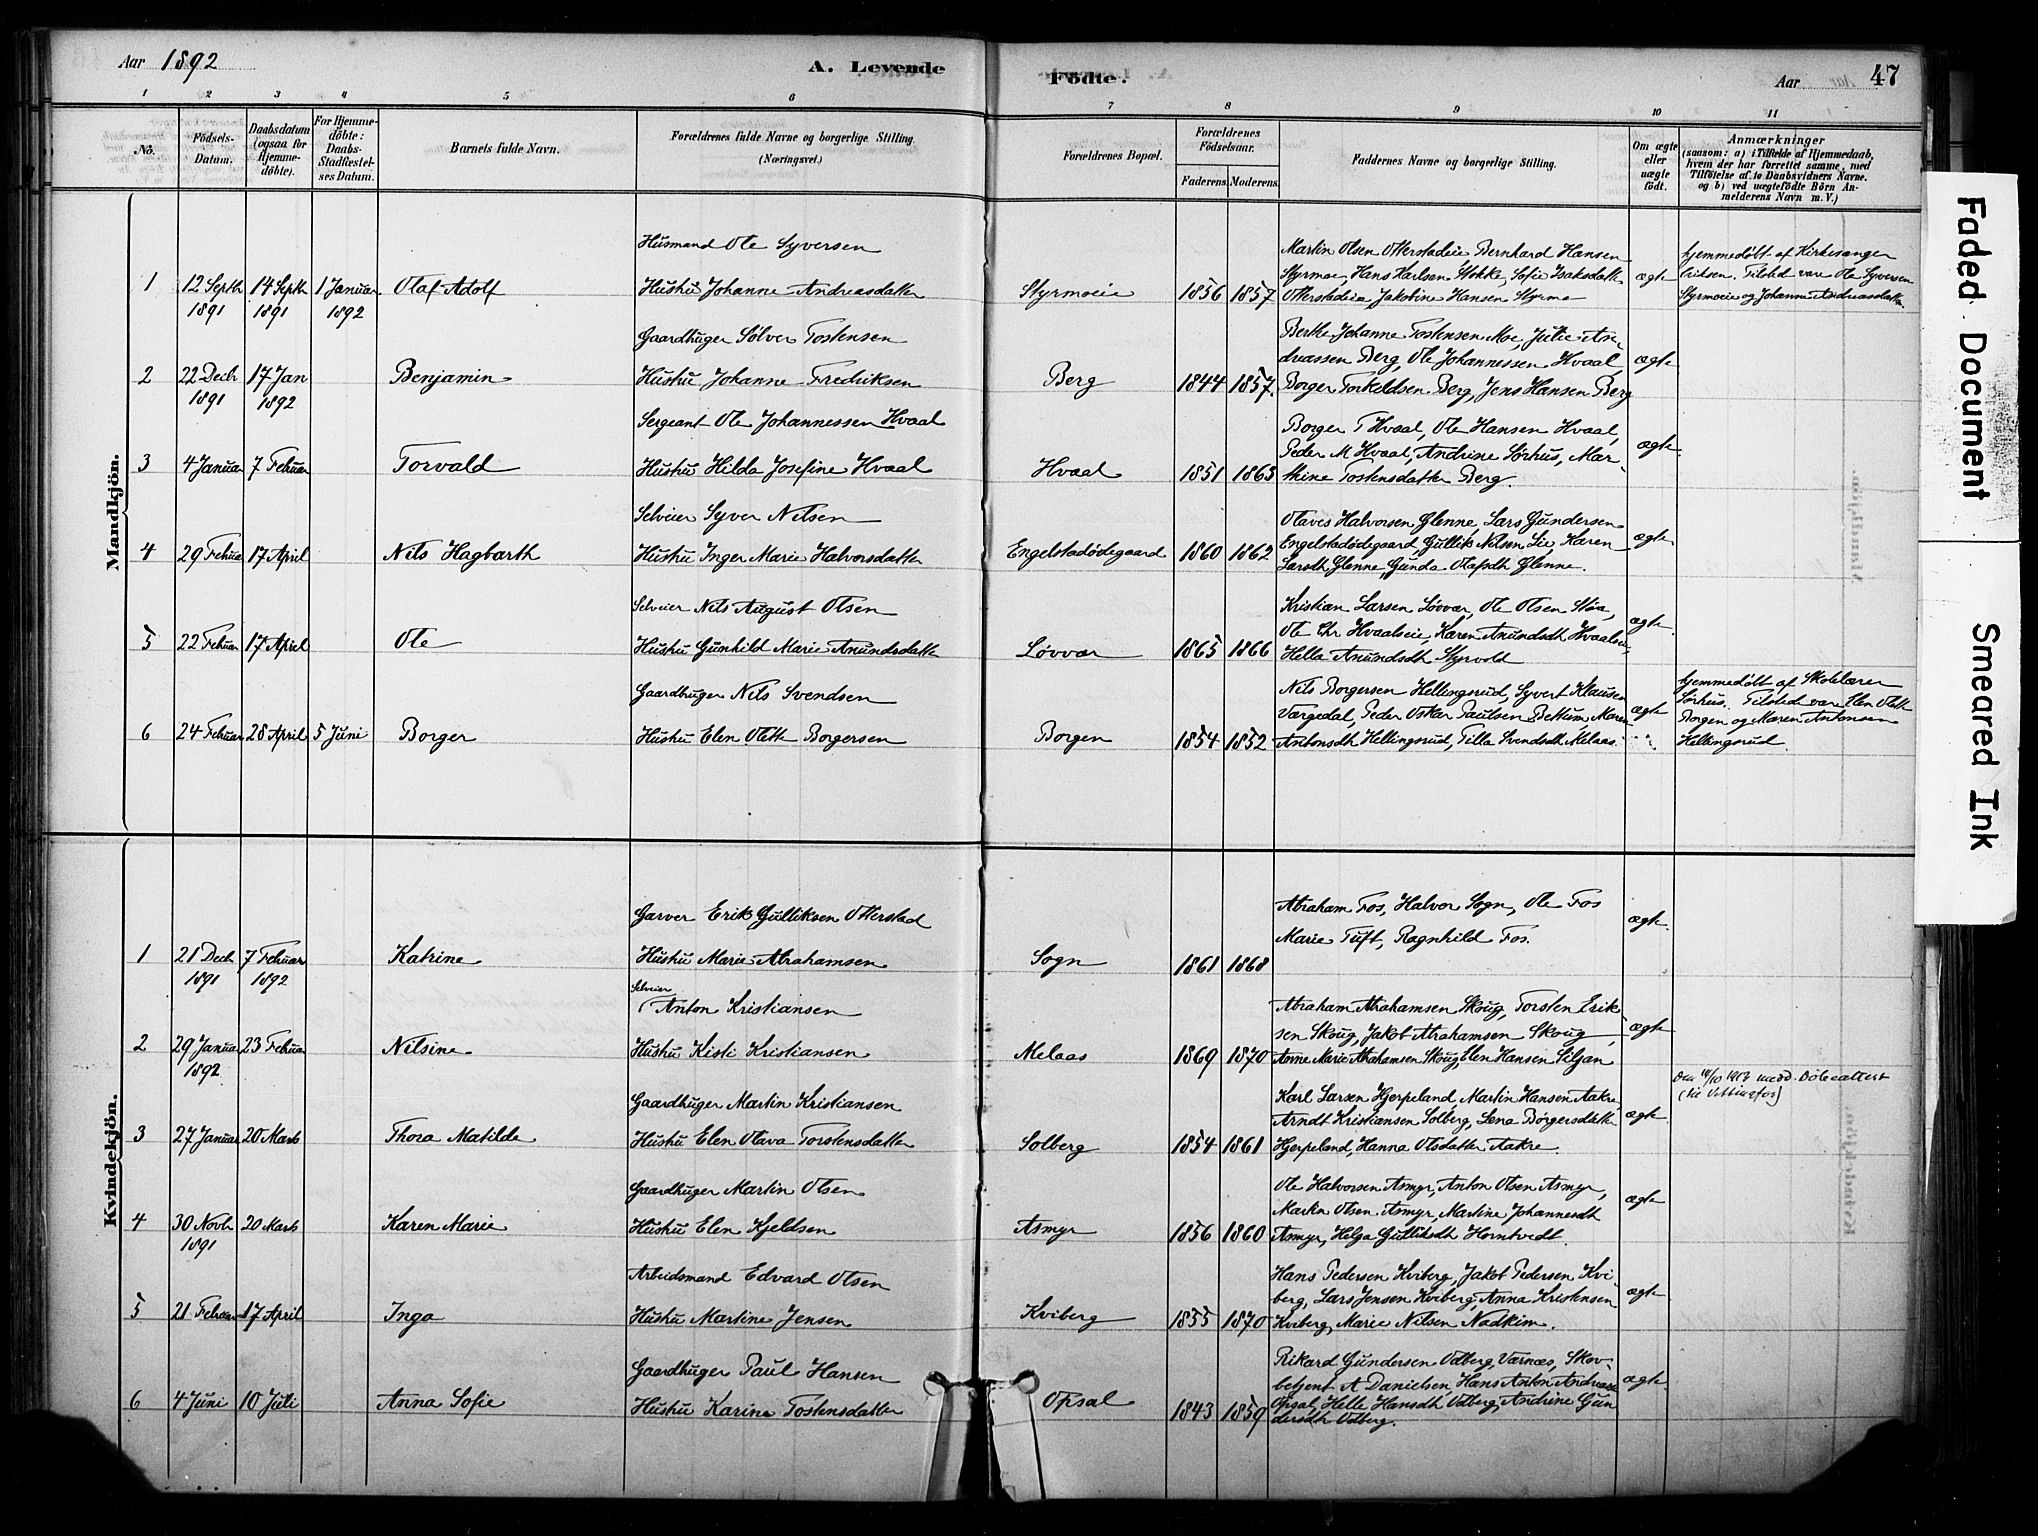 Aar 1892
A. Levende
Fødte.
Aar
47
1 2 3 4 5 6 7 8 9 10 11
No.
Fødsels-
Datum.
Daabsdatum
(ogsaa for
Hjemme-
døbte).
For Hjemme-
døbte:
Daabs-
Stadfæstel-
ses Datum.
Barnets fulde Navn.
Forældrenes fulde Navne og borgerlige Stilling.
(Næringsvei.)
Forældrenes Bopæl.
Forældrenes
Fødselsaar.
Faderens.
Moderens.
Faddernes Navne og borgerlige Stilling.
Om ægte
eller
uægte
født.
Anmærkninger
(saasom: a) i Tilfælde af Hjemmedaab,
hvem der har forrettet samme, med
Tilføielse af to Daabsvidners Navne.
og b) ved uægtefødte Børn An-
melderens Navn m. V.)
Mandkjön.
1
12 Septbr
1891
14 Septbr
1891
1 Januar
1892
Olaf Adolf
Husmand Ole Syversen
Hustru Johanne Andreasdatter
Styrmoeie
1856
1857
Martin Olsen Otterstadeie, Bernhard Hansen
Styrmoe, Hans Karlsen Stokke, Sofie Isaksdatter
Otterstadeie, Jakobine Hansen Styrmo
ægte
hjemmedøbt af Kirkesanger
Eriksen. Tilsted vare Ole Syversen
Styrmoeie og Johanne Andreasdatter
2
22 Decbr
1891
17 Jan
1892
Benjamin
Gaardbruger Sølver Tostensen
Hustru Johanne Fredriksen
Berg
1844
1857.
Berthe Johanne Tostensen Moe, Julie An-
dreassen Berg, Ole Johannessen Hvaal,
Borger Torkeldsen Berg, Jens Hansen Berg
ægte
3
4 Januar
7 Februar
Torvald
Sergeant Ole Johannessen Hvaal
Hustru Hilda Josefine Hvaal
Hvaal
1851
1863
Borger T Hvaal, Ole Hansen Hvaal,
Peder M Hvaal, Andrine Sørhus, Mar-
thine Tostensdatter Berg.
ægte
4
29 Februar
17 April
Nils Hagbarth
Selveier Syver Nilsen
Hustru Inger Marie Halvorsdatter
Engelstadødegaard
1860
1862
Olaves Halvorsen Glenne, Lars Gundersen
Engelstadødegaard, Gullik Nilsen Lie, Karen
Larsdtr Glenne, Gunda Olafsdtr Glenne.
ægte
5
22 Februar
17 April
Ole
Selveier Nils August Olsen
Hustru Gunhild Marie Anundsdatter
Løvvar
1865
1866
Kristian Larsen Løvvar, Ole Olsen Støa,
Ole Chr Hvaalseie, Karen Anundsdtr Hvaalseie,
Hella Anundsdtr Styrvold
ægte
6
24 Februar
28 April
5 Juni
Borger
Gaardbruger Nils Svendsen
Hustru Elen Oleth Borgersen
Borgen
1854
1852
Nils Borgersen Hellingsrud, Syvert Klausen
Værgedal, Peder Oskar Paulsen Bettum, Maren
Antonsdtr Hellingsrud, Tilla Svendsdtr Melaas.
ægte
hjemmedøbt af Skolelærer
Sørhus. Tilsted vare Elen Oleth
Borgen og Maren Antonsen
Hellingsrud.
Kvindekjön.
1
21 Decbr
1891
7 Februar
1892
Katrine
Garver Erik Gulliksen Otterstad
Hustru Marie Abrahamsen
Sogn
1861
1868
Abraham Fos, Halvor Sogn, Ole Fos
Marie Tuft, Ragnhild Fos.
ægte
2
29 Januar
1892
23 Februar
Nilsine
Selveier
Anton Kristiansen
Hustru Kisti Kristiansen
Melaas
1869
1870
Abraham Abrahamsen Skoug, Torsten Erik-
sen Skoug, Jakob Abrahamsen Skoug,
Anne Marie Abrahamsen Skoug, Elen Hansen Siljan
ægte
3
27 Januar
20 Marts
Thora Matilde
Gaardbruger Martin Kristiansen
Hustru Elen Olava Torstensdatter
Solberg
1854
1861
Karl Larsen Hjerpeland, Martin Hansen Aakre,
Arndt Kristiansen Solberg, Lena Børgersdatter
Hjerpeland, Hanna Olsdatter Aakre.
ægte
medd. Døbeattest
4
30 Novbr
1891
20 Marts
Karen Marie
Gaardbruger Martin Olsen
Hustru Elen Kjeldsen
Asmyr
1856
1860
Ole Halvorsen Asmyr, Anton Olsen Asmyr,
Martin Olsen Asmyr, Martine Johannesdtr
Asmyr, Helga Gulliksdtr Horntvedt.
ægte
5
21 Februar
17 April
Inga
Arbeidsmand Edvard Olsen
Hustru Martine Jensen
Kviberg
1855
1870
Hans Pedersen Kviberg, Jakob Pedersen Kvi-
berg, Lars Jensen Kviberg, Anna Kristensen
Kviberg, Marie Nilsen Nadkim.
ægte
6
4 Juni
10 Juli
Anna Sofie
Gaardbruger Paul Hansen
Hustru Karine Tostensdatter
Opsal
1843
1859
Rikard Gundersen Odberg, Værnæs, Skov-
betjent A Danielsen, Hans Anton Andreassen
Opsal, Helle Hansdtr Odberg, Andrine Gun-
dersdtr Odberg.
ægte
Faded Document
Smeared Ink